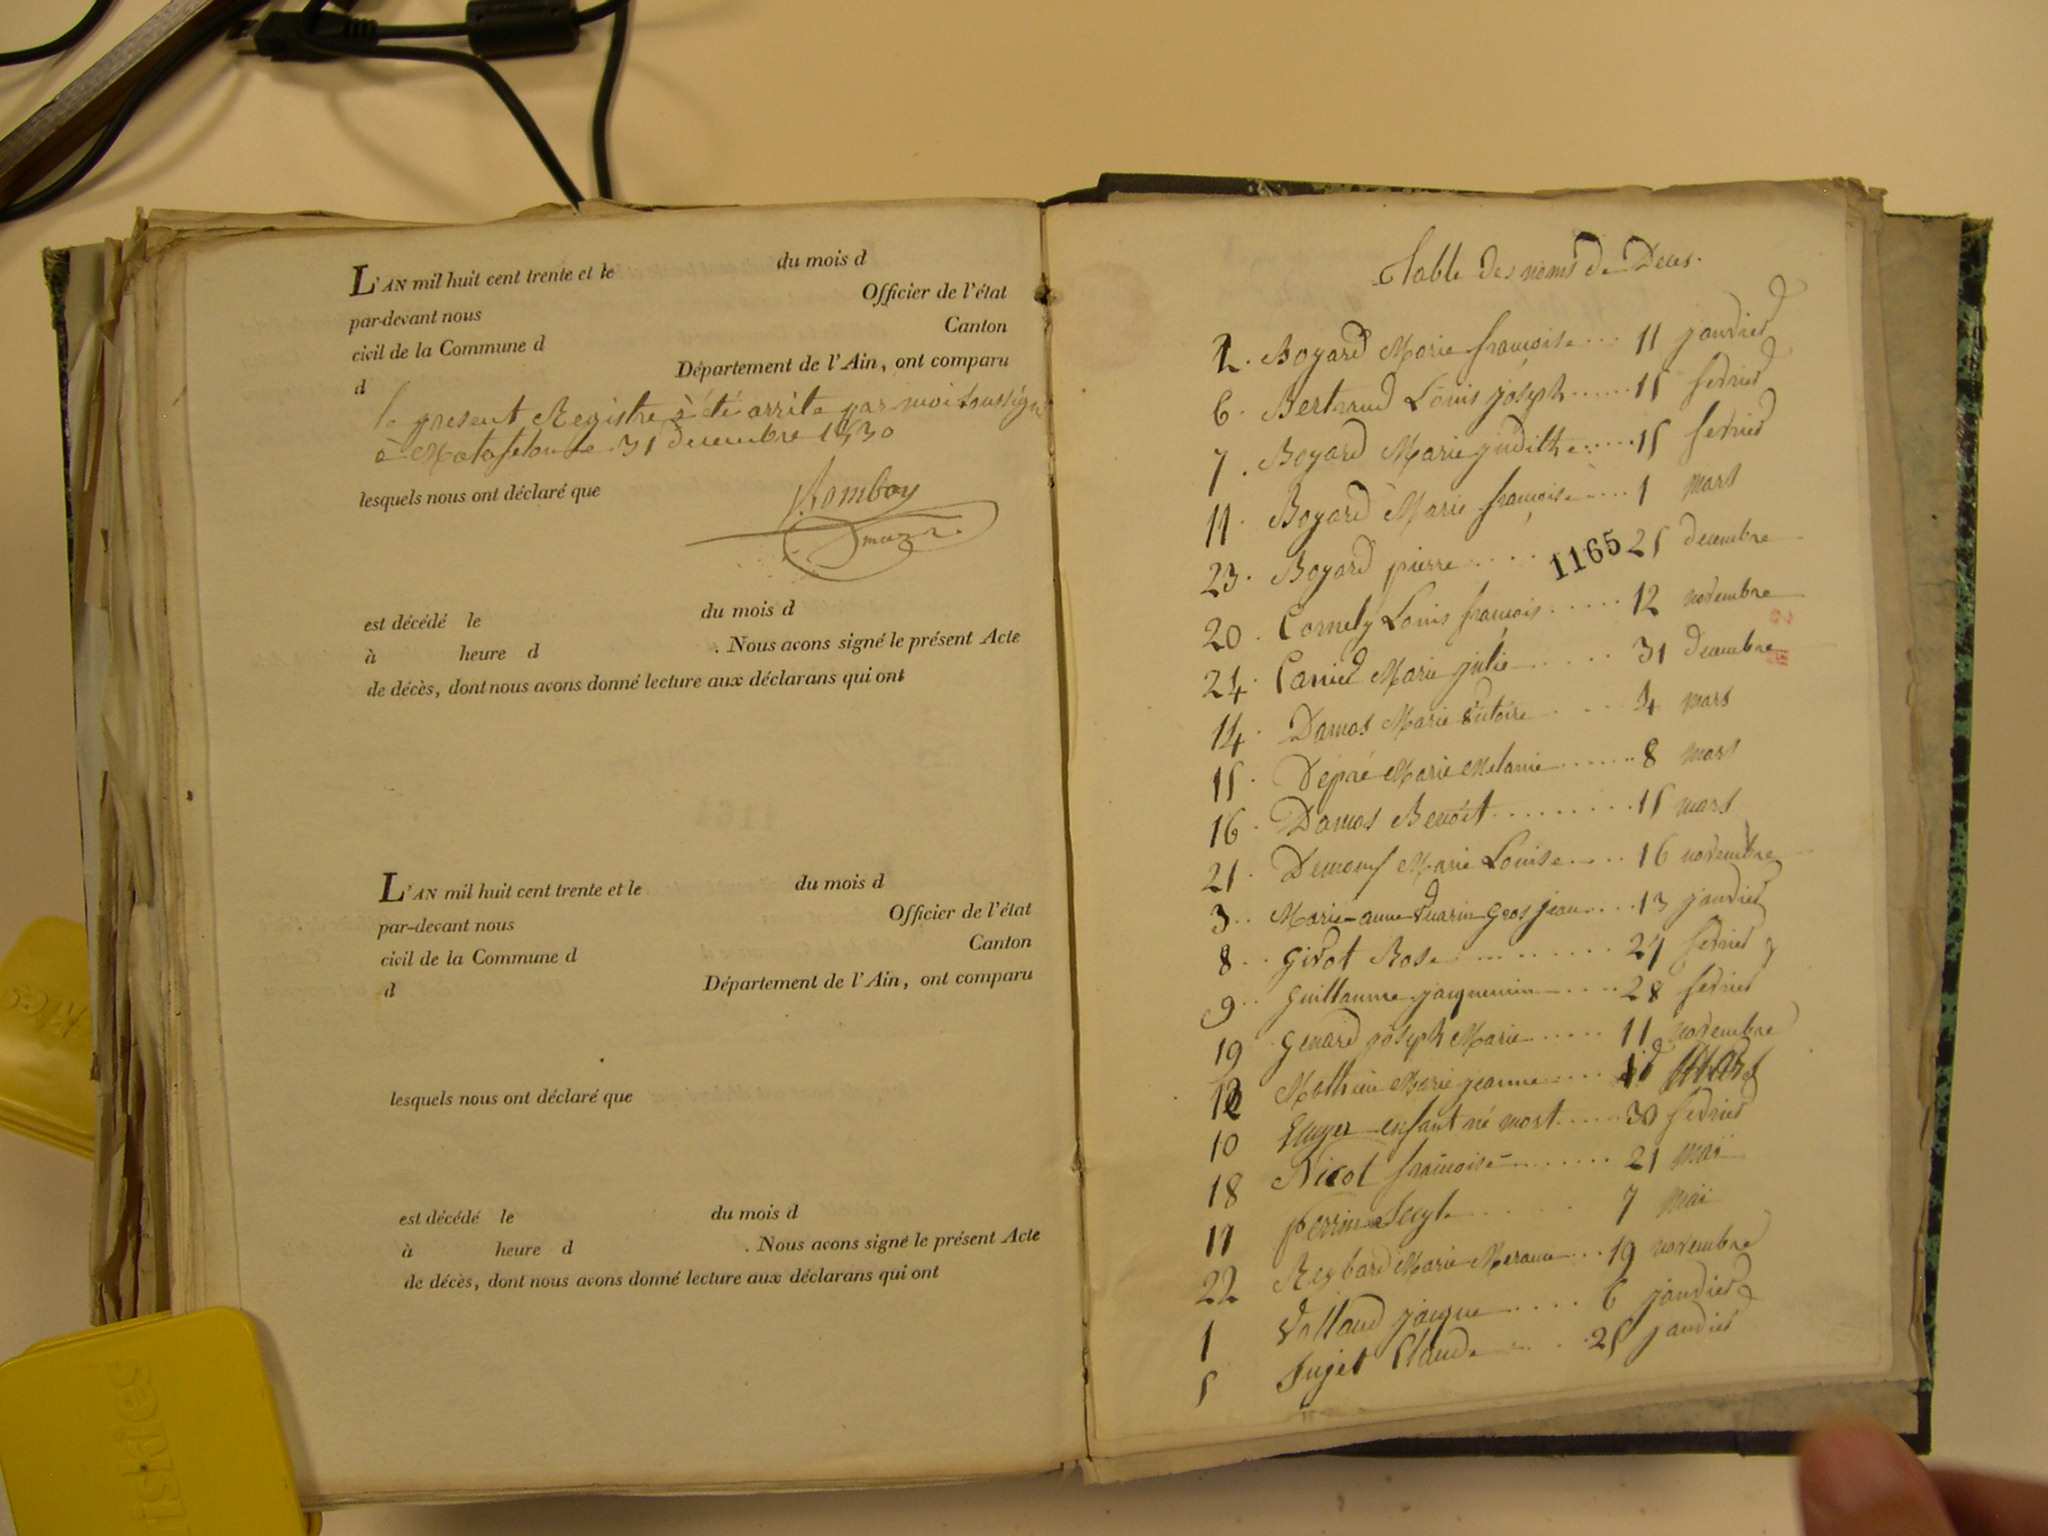 L'AN mil huit cent trente et le du mois d
par-devant nous Officier de l'état
civil de la Commune d Canton
d Département de l'Ain, ont comparu
le present Registre à été arrite par moi soussigné
à Matafelon le 31 decembre 1830
lesquels nous ont déclaré que
est décédé le du mois d
à heure d . Nous avons signé le présent Acte
de décès, dont nous avons donné lecture aux déclarans qui ont
L'AN mil huit cent trente et le du mois d
par-devant nous Officier de l'état
civil de la Commune d Canton
d Département de l'Ain, ont comparu
lesquels nous ont déclaré que
est décédé le du mois d
à heure d . Nous avons signé le présent Acte
de décès, dont nous avons donné lecture aux déclarans qui ont
Table des noms de Deces.
2. Boyard Marie francoise 11 janvier
6. Bertrand Louis joseph 15 fevrier
7. Boyard Marie judithe 15 fevrier
11. Boyard Marie francoise 1 mars
23. Boyard pierre 25 decembre
1165
20. Cornely Louis francois 12 novembre
24. Marie julie 31 decembre
14. Damas Marie victoire 4 mars
15. Dépré Marie Melanie 8 mars
16. Damas Benoit 15 mars
21. Marie Louise 16 novembre
3. Marie-anne Gros jean 13 janvier
8. Givot Rose 24 fevrier
9. Guillaume jacquemin 28 fevrier
19 Genard joseph Marie 11 novembre
12 Mathieu Marie jeanne mars
10 enfant né mort 30 fevrier
18 Nicol francoise 21 mai
17 perrin 7 mai
22 Reybard Marie 19 novembre
1 Volland jacque 6 janvier
5 Sujet Claude 25 janvier